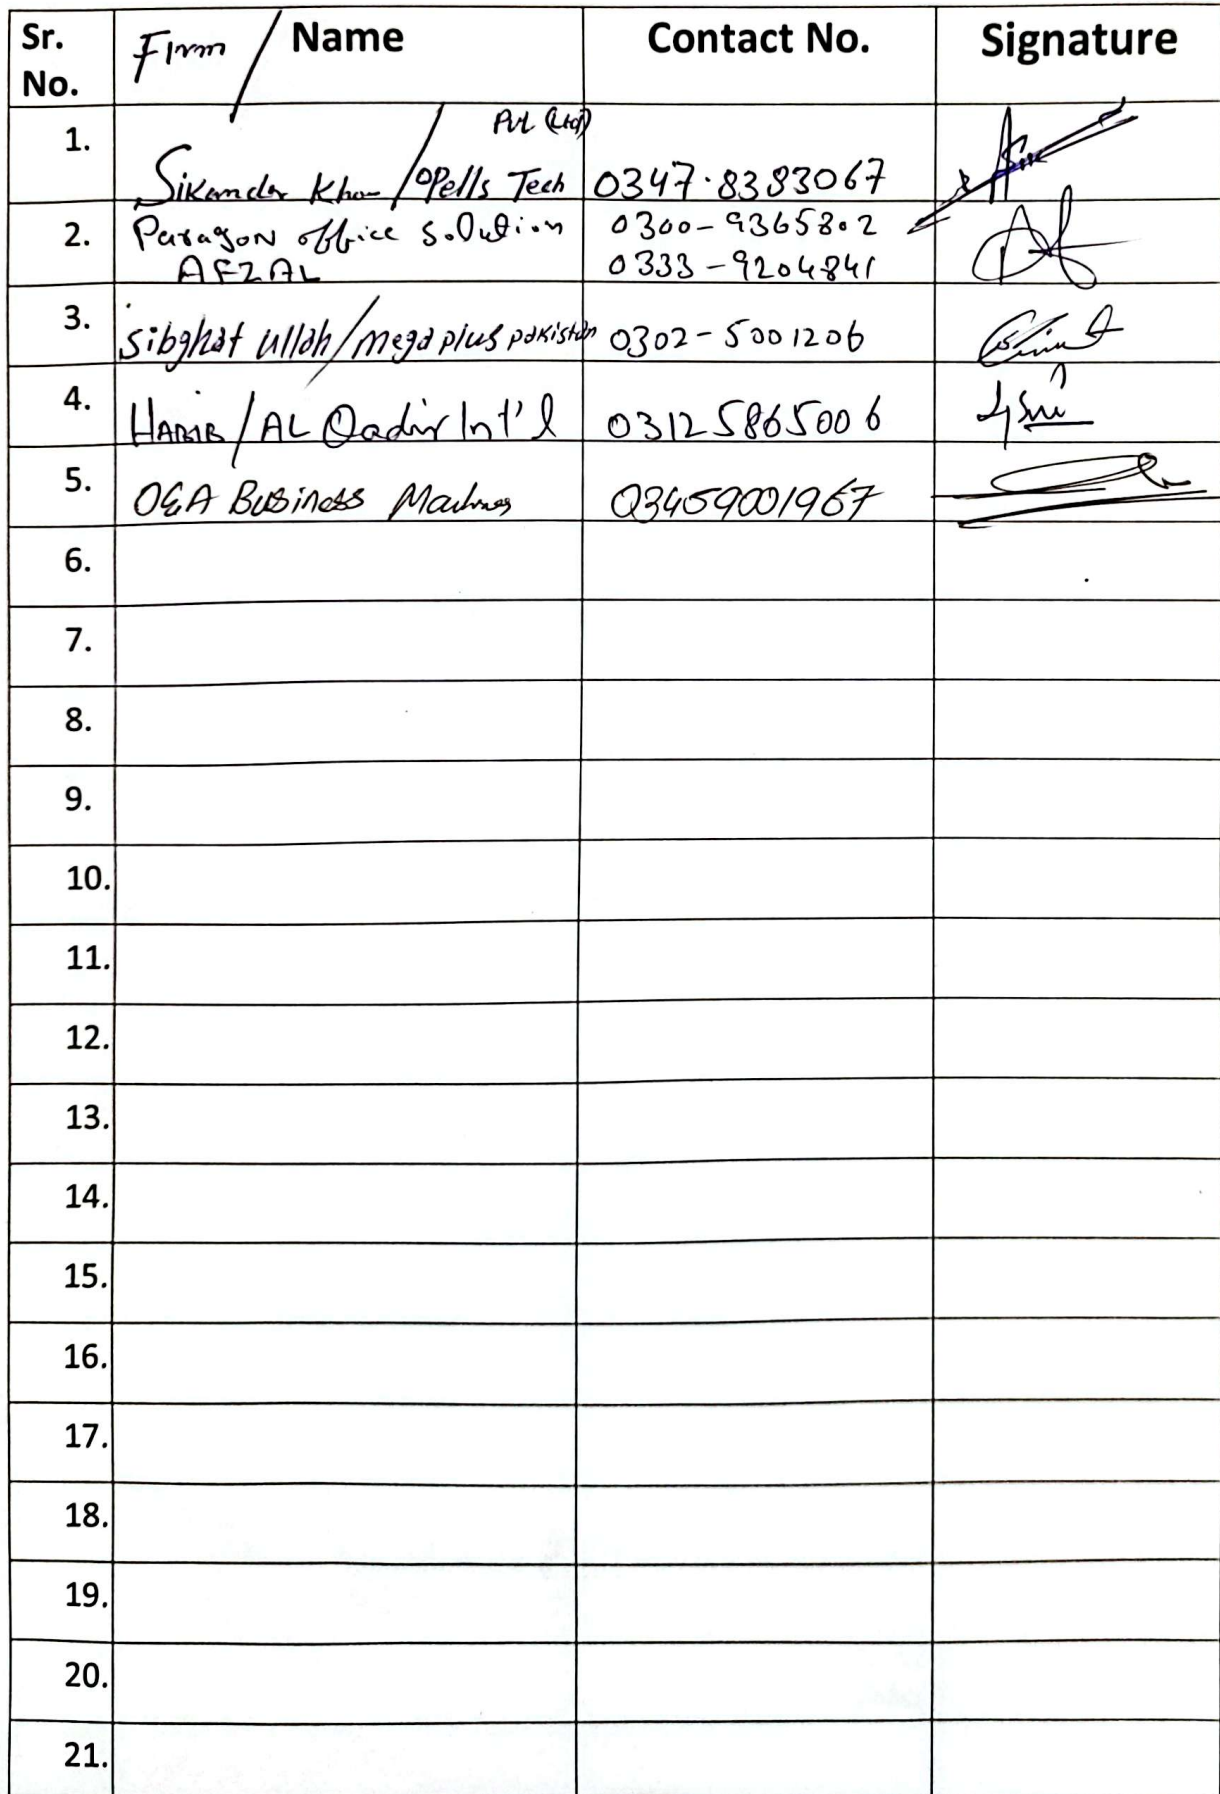 Sr. No. Firm / Name Contact No. Signature
1. Pvt (Ltd)
Sikander Khan / OPells Tech 0347-8383067
2. Paragon office Solution 0300-9365802
AFZAL 0333-9204841
3. Sibghat Ullah / mega plus pakistan 0302-5001206
4. HABIB / AL Qadir Int'l 03125865006
5. O&A Business Machines 03459001967
6.
7.
8.
9.
10.
11.
12.
13.
14.
15.
16.
17.
18.
19.
20.
21.